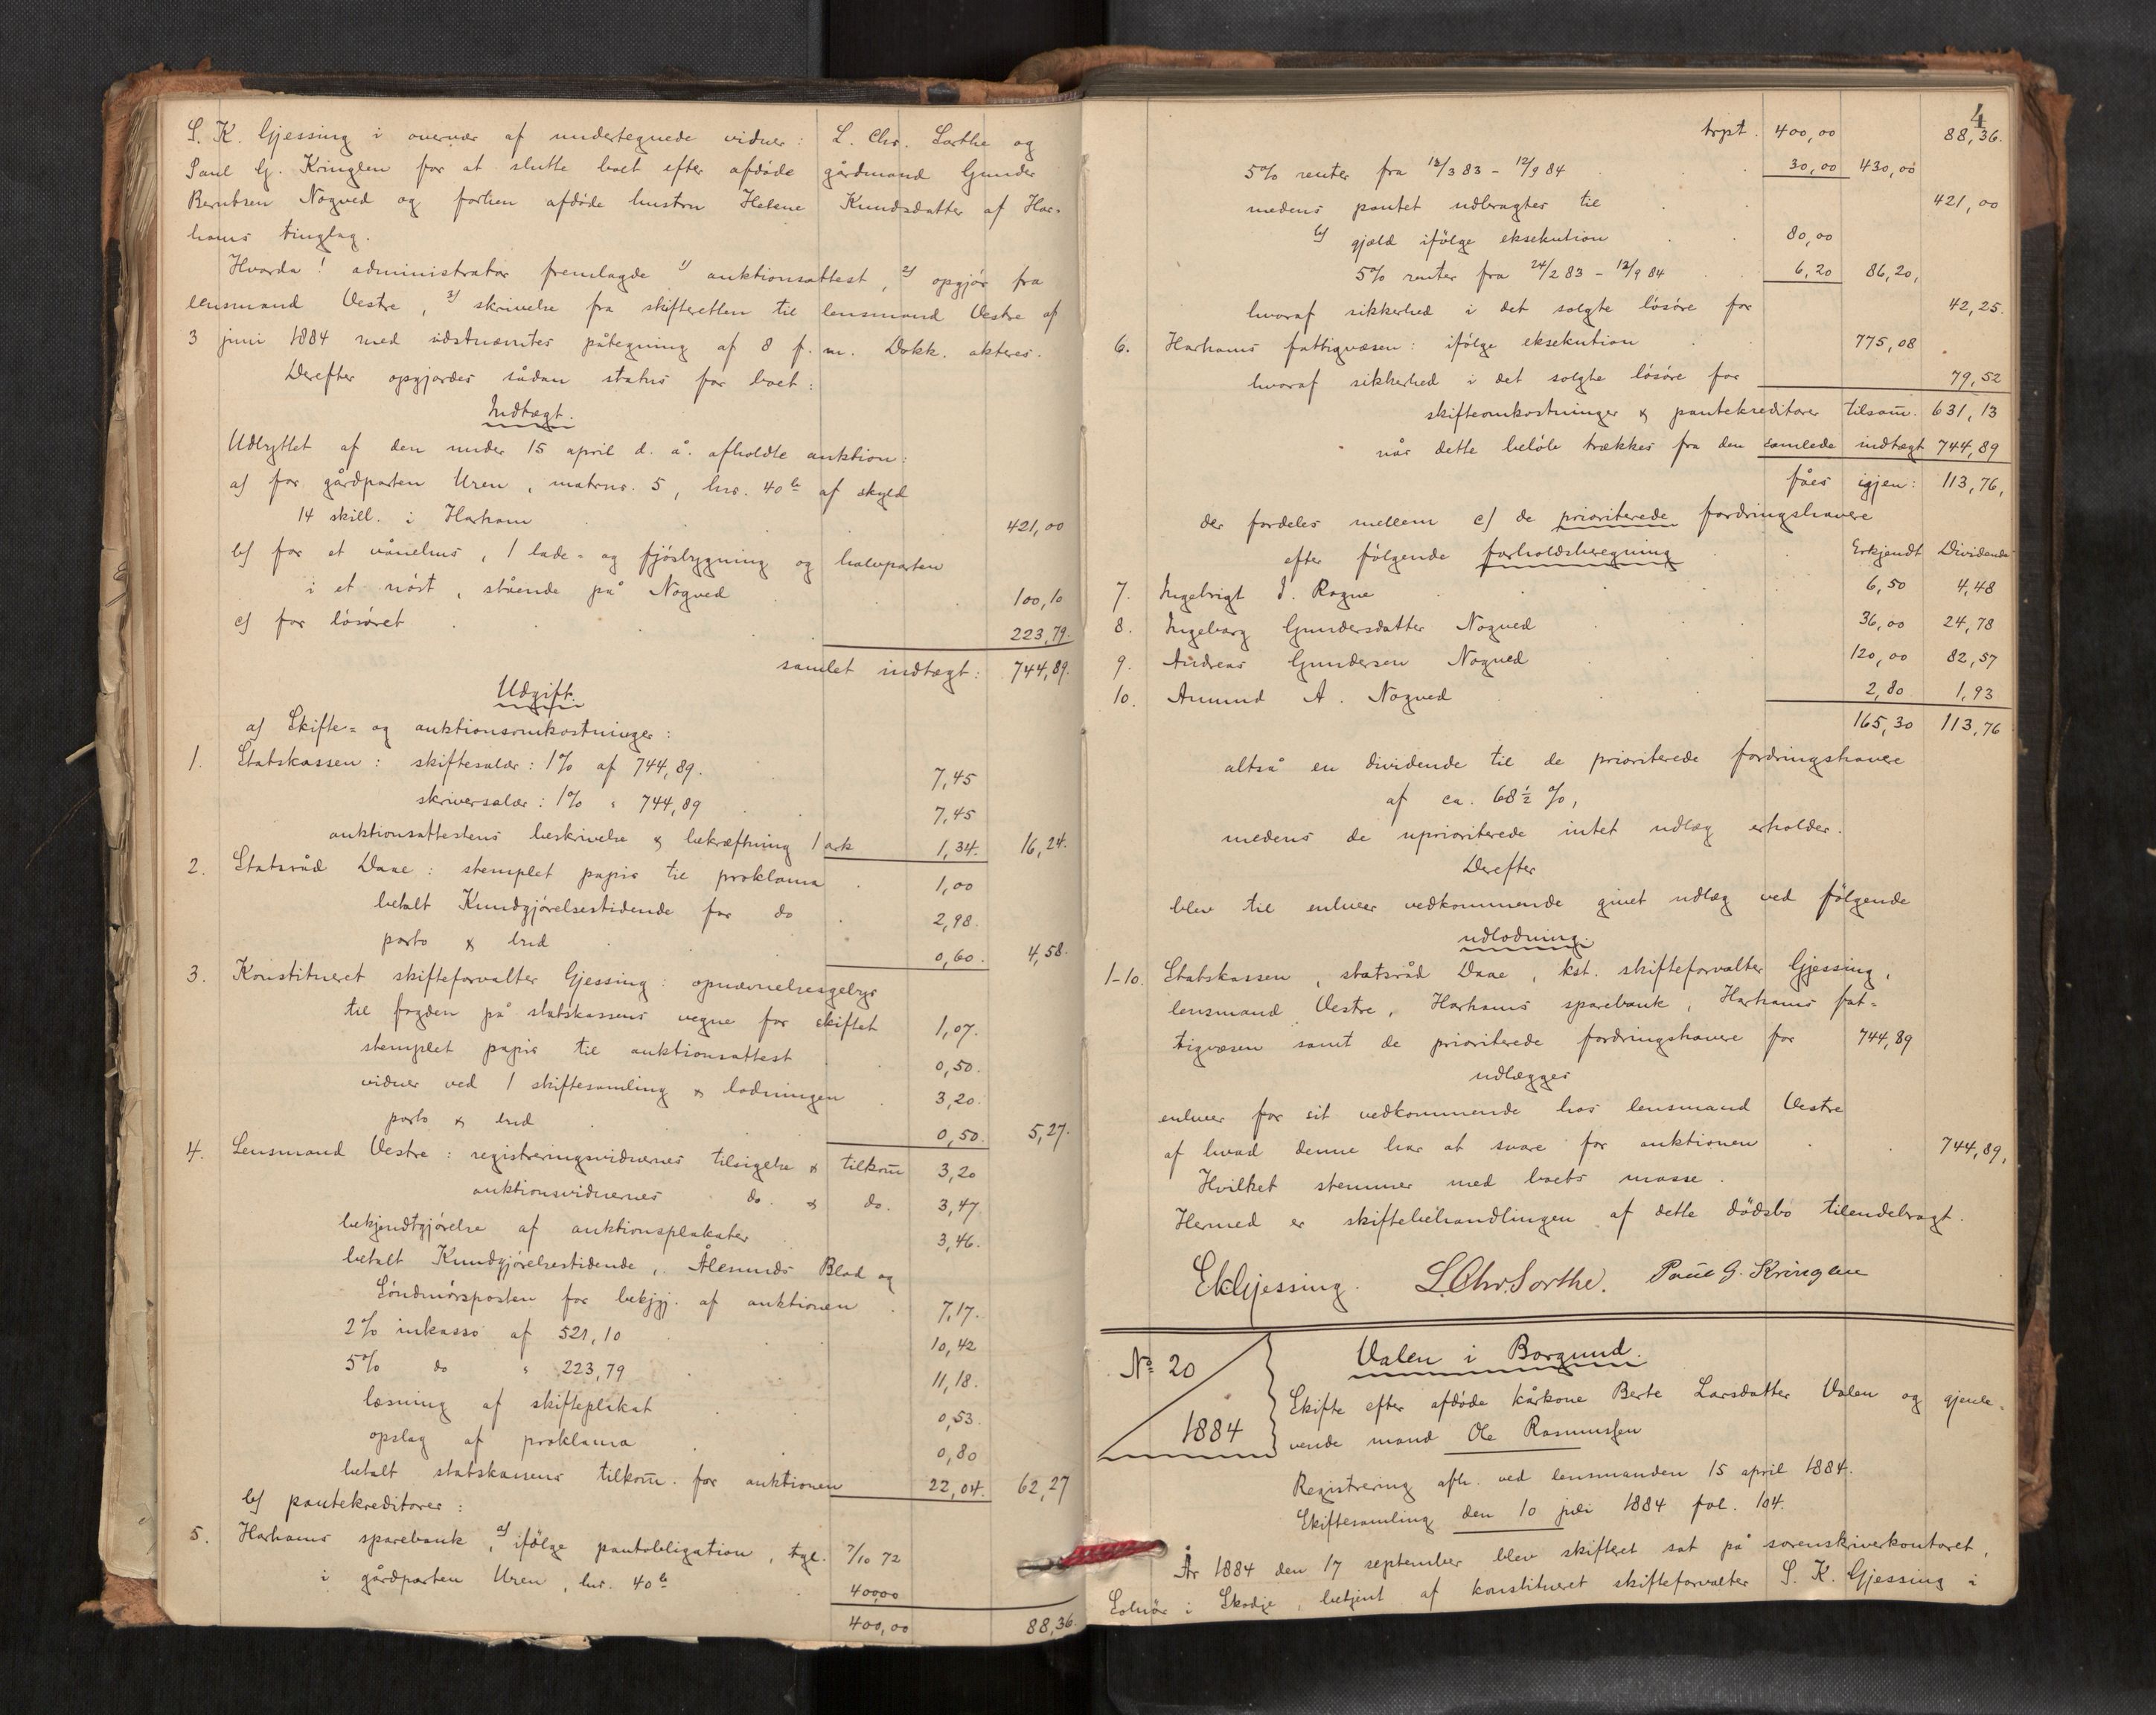 S. K. Gjessing i overvær af undertegnede vidner: L. Chr. Sorthe og
Paul G. Kringlen for at slutte boet efter afdøde gårdmand Gunder
Berntsen Nogved og forhen afdøde hustru Helene Knudsdatter af Har-
hams tinglag.
Hvorda! administrator fremlagde 1) auktionsattest, 2) opgjør fra
lensmand Vestre, 3) skrivelse fra skifteretten til lensmand Vestre af
3 juni 1884 med sidstnævntes påtegning af 8 f. m. Dokk. akteres.
Derefter opgjordes sådan status for boet:
Indtægt.
Udbyttet af den under 15 april d. å. afholdte auktion:
a) for gårdparten Uren, matrnr. 5, lnr. 40b af skyld
14 skill. i Harham 421,00
b) for et vånehus, 1 lade- og fjøsbygning og halvparten
i et nøst, stående på Nogved 100,10
c) for løsøret 223,79.
samlet indtægt: 744,89.
Udgift.
a) Skifte- og auktionsomkostninger:
1. Statskassen: skiftesalær: 1% af 744,89. 7,45
skriversalær: 1% " 744,89 7,45
auktionsattestens beskrivelse & bekræftning 1 ark 1,34. 16,24.
2. Statsråd Daae: stemplet papir til proklama 1,00
betalt Kundgjørelsestidende for do 2,98.
porto & bud 0,60. 4,58.
3. Konstitueret skifteforvalter Gjessing: opnævnelsesgebyr
til fogden på statskassens vegne for skiftet 1,07.
stemplet papir til auktionsattest 0,50.
vidner ved 1 skiftesamling & lodningen 3,20.
porto & bud 0,50. 5,27.
4. Lensmand Vestre: registreringsvidnernes tilsigelse & tilkom̄ 3,20
auktionsvidnernes do. & do. 3,47
bekjendtgjørelse af auktionsplakater 3,46.
betalt Kundgjørelsestidende, Ålesunds Blad og
Søndmørsposten for bekjgj. af auktionen 7,17.
2% inkasso af 521,10 10,42
5% do " 223,79 11,18.
læsning af skifteplakat 0,53.
opslag af proklama 0,80
betalt statskassens tilkom̄. for auktionen 22,04. 62,27
b) pantekreditorer:
5. Harhams sparebank, a) ifølge pantobligation, tgl. 7/10 72
i gårdparten Uren, lnr. 40b 400,00
400,00 88,36.
4
trpt. 400,00 88,36.
5% renter fra 12/3 83 - 12/9 84 30,00 430,00
medens pantet udbragtes til 421,00
b) gjæld ifølge eksekution 80,00
5% renter fra 24/2 83 - 12/9 84 6,20 86,20,
hvoraf sikkerhed i det solgte løsøre for 42,25.
6. Harhams fattigvæsen: ifølge eksekution 775,08
hvoraf sikkerhed i det solgte løsøre for 79,52
skifteomkostninger & pantekreditorer tilsam̄. 631,13
når dette beløb trækkes fra den samlede indtægt 744,89
fåes igjen: 113,76,
der fordeles mellem c) de prioriterede fordringshavere
efter følgende forholdsberegning Erkjendt Dividende
7. Ingebrigt I. Rogne 6,50 4,48
8. Ingeborg Gundersdatter Nogved 36,00 24,78
9. Andreas Gundersen Nogved 120,00 82,57
10. Amund A. Nogved 2,80 1,93
165,30 113,76
altså en dividende til de prioriterede fordringshavere
af ca. 68½ %,
medens de uprioriterede intet udlæg erholder.
Derefter
blev til enhver vedkommende givet udlæg ved følgende
udlodning.
1-10. Statskassen, statsråd Daae, kst. skifteforvalter Gjessing,
lensmand Vestre, Harhams sparebank, Harhams fat-
tigvæsen samt de prioriterede fordringshavere for 744,89
udlægges
enhver for sit vedkommende hos lensmand Vestre
af hvad denne har at svare for auktionen 744,89,
Hvilket stemmer med boets masse.
Hermed er skiftebehandlingen af dette dødsbo tilendebragt.
SKGjessing. L.Chr.Sorthe. Paul G. Kringlen
No 20
1884
Valen i Borgund.
Skifte efter afdøde kårkone Berte Larsdatter Valen og gjenle-
vende mand Ole Rasmussen
Registrering afh. ved lensmanden 15 april 1884.
Skiftesamling den 10 juli 1884 fol. 104.
År 1884 den 17 september blev skifteret sat på sorenskriverkontoret,
Solnør i Skodje, betjent af konstitueret skifteforvalter S. K. Gjessing i